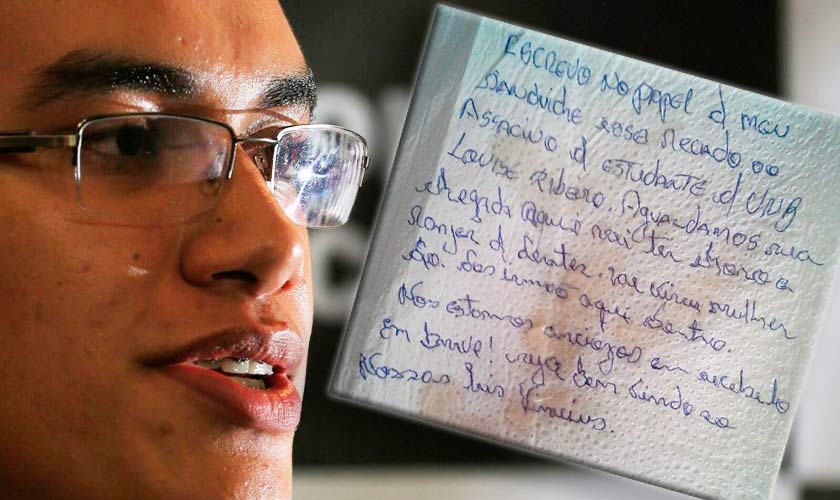 ESCREVO NO PAPEL d meu
Sanduiche esse Recado ao
ASSACINO d estudate d UNB
Louise Ribero. Aguardamos sua
chegada aqui vai ter
ranjer d dentes. virar mulher
aqui dentro.
Nos estamos anciozos em recebelo
em breve! seja bem vindo ao
Luis Vinicius.